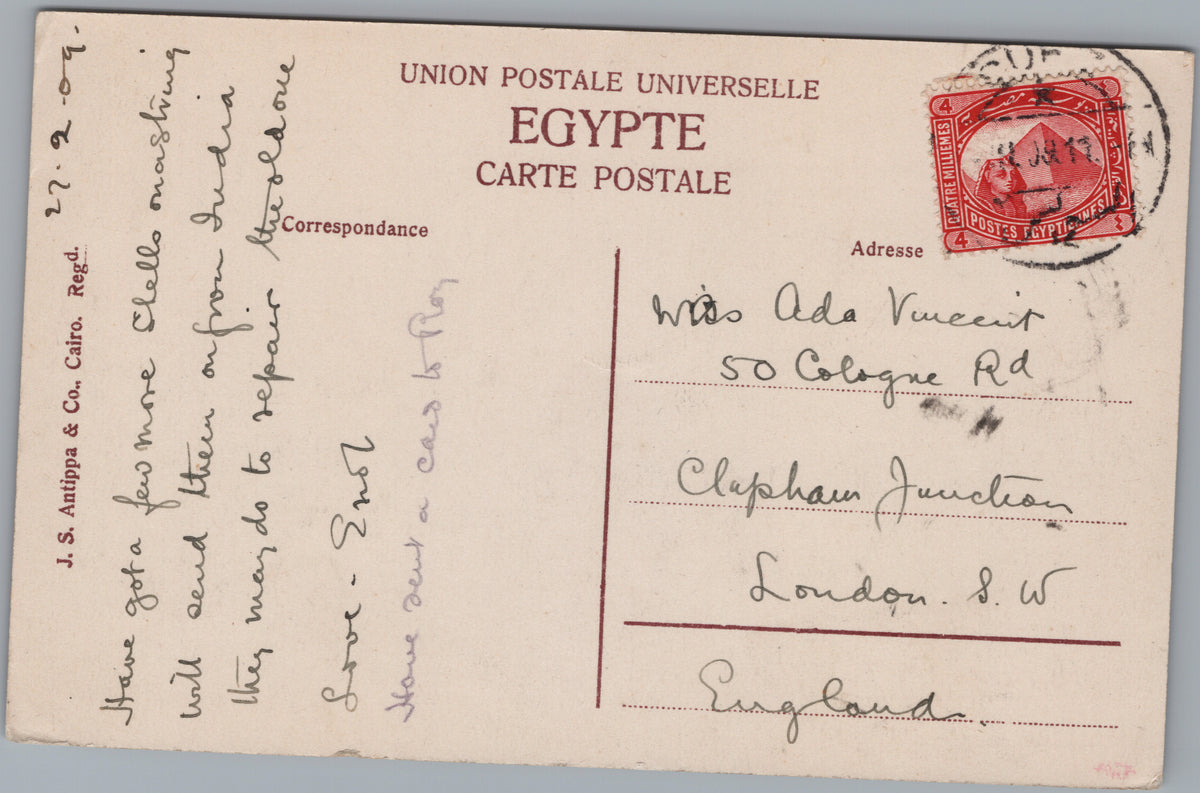 UNION POSTALE UNIVERSELLE
EGYPTE
CARTE POSTALE
Correspondance
Adresse
J. S. Antippa & Co., Cairo. Regd.
27.2.09.
Have got a few more Shells on a string
will send them on from India
they may do to repair the old one
Love - Enot
Have sent a card to Roy
Miss Ada Vincent
50 Cologne Rd
Clapham Junction
London. S. W
England.
QUATRE MILLIEMES
POSTES EGYPTIENNES
4
4
٤